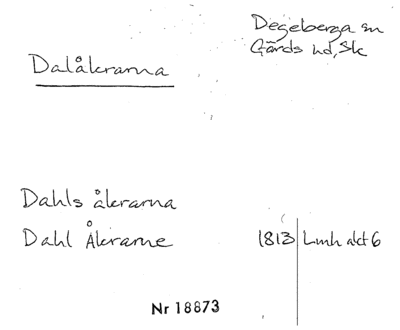 Degeberga sn
Gärds hd, Sk
Dalåkrarna
Dahls åkrarna
Dahl Åkrarne 1813 Lmh akt 6
Nr 18873